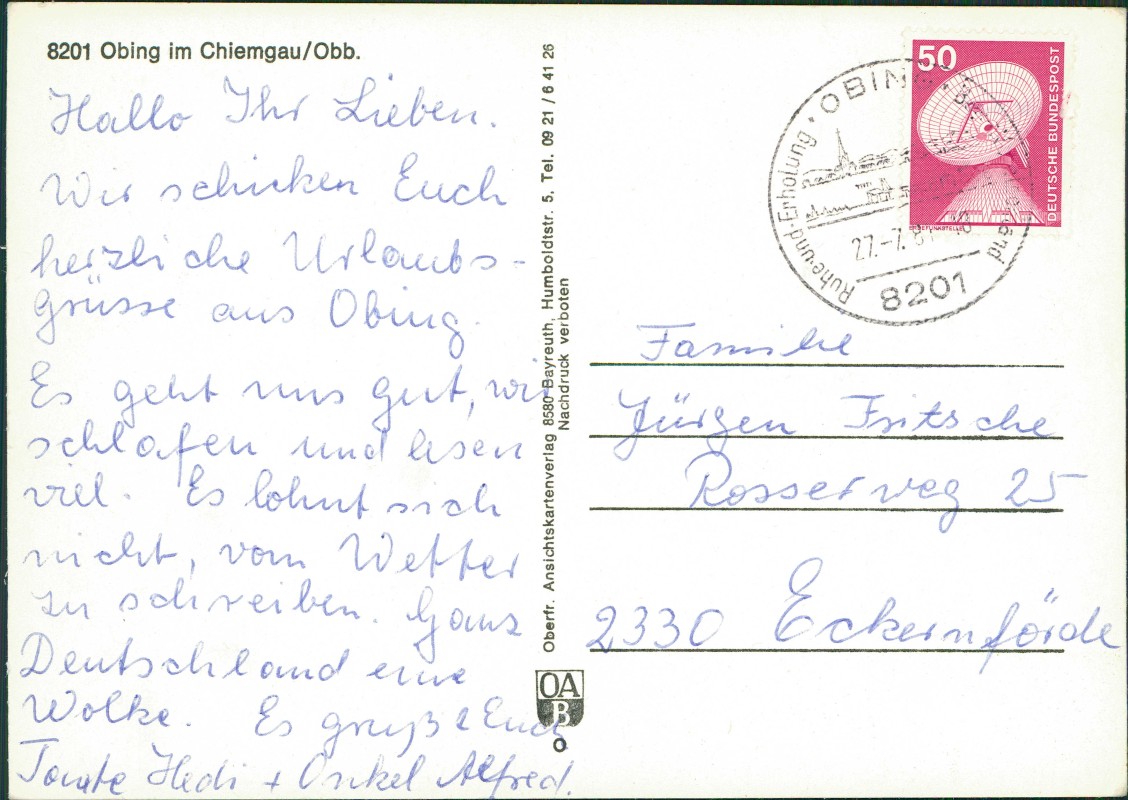 8201 Obing im Chiemgau/Obb.
Hallo Ihr Lieben.
Wir schicken Euch
herzliche Urlaubs-
Grüsse aus Obing.
Es geht uns gut, wir
schlafen und lesen
viel. Es lohnt sich
nicht, vom Wetter
zu schreiben. Ganz
Deutschland eine
Wolke. Es grüßt Euch
Tante Hedi + Onkel Alfred.
Oberfr. Ansichtskartenverlag 8580 Bayreuth, Humboldtstr. 5, Tel. 09 21 / 6 41 26
Nachdruck verboten
OA
B
O
50
DEUTSCHE BUNDESPOST
ERDEFUNKSTELLE
OBING
Ruhe-und-Erholung
27.-7.81
8201
Familie
Jürgen Fritsche
Rosserweg 25
2330 Eckernförde